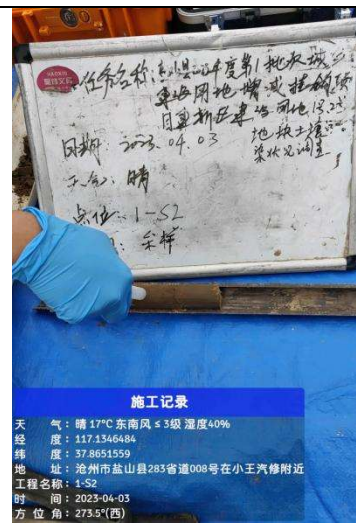 任务名称:盐山县2022年度第1批次城
乡建设用地增减挂钩项
目建新区建设用地1822
地块土壤污
染状况调查
日期:2023.04.03
天气:晴
点位:1-S2
采样
施工记录
天 气:晴 17℃ 东南风 ≤ 3级 湿度40%
经 度:117.1346484
纬 度:37.8651559
地 址:沧州市盐山县283省道008号在小王汽修附近
工程名称:1-S2
时 间:2023-04-03
方 位 角:273.5°(西)